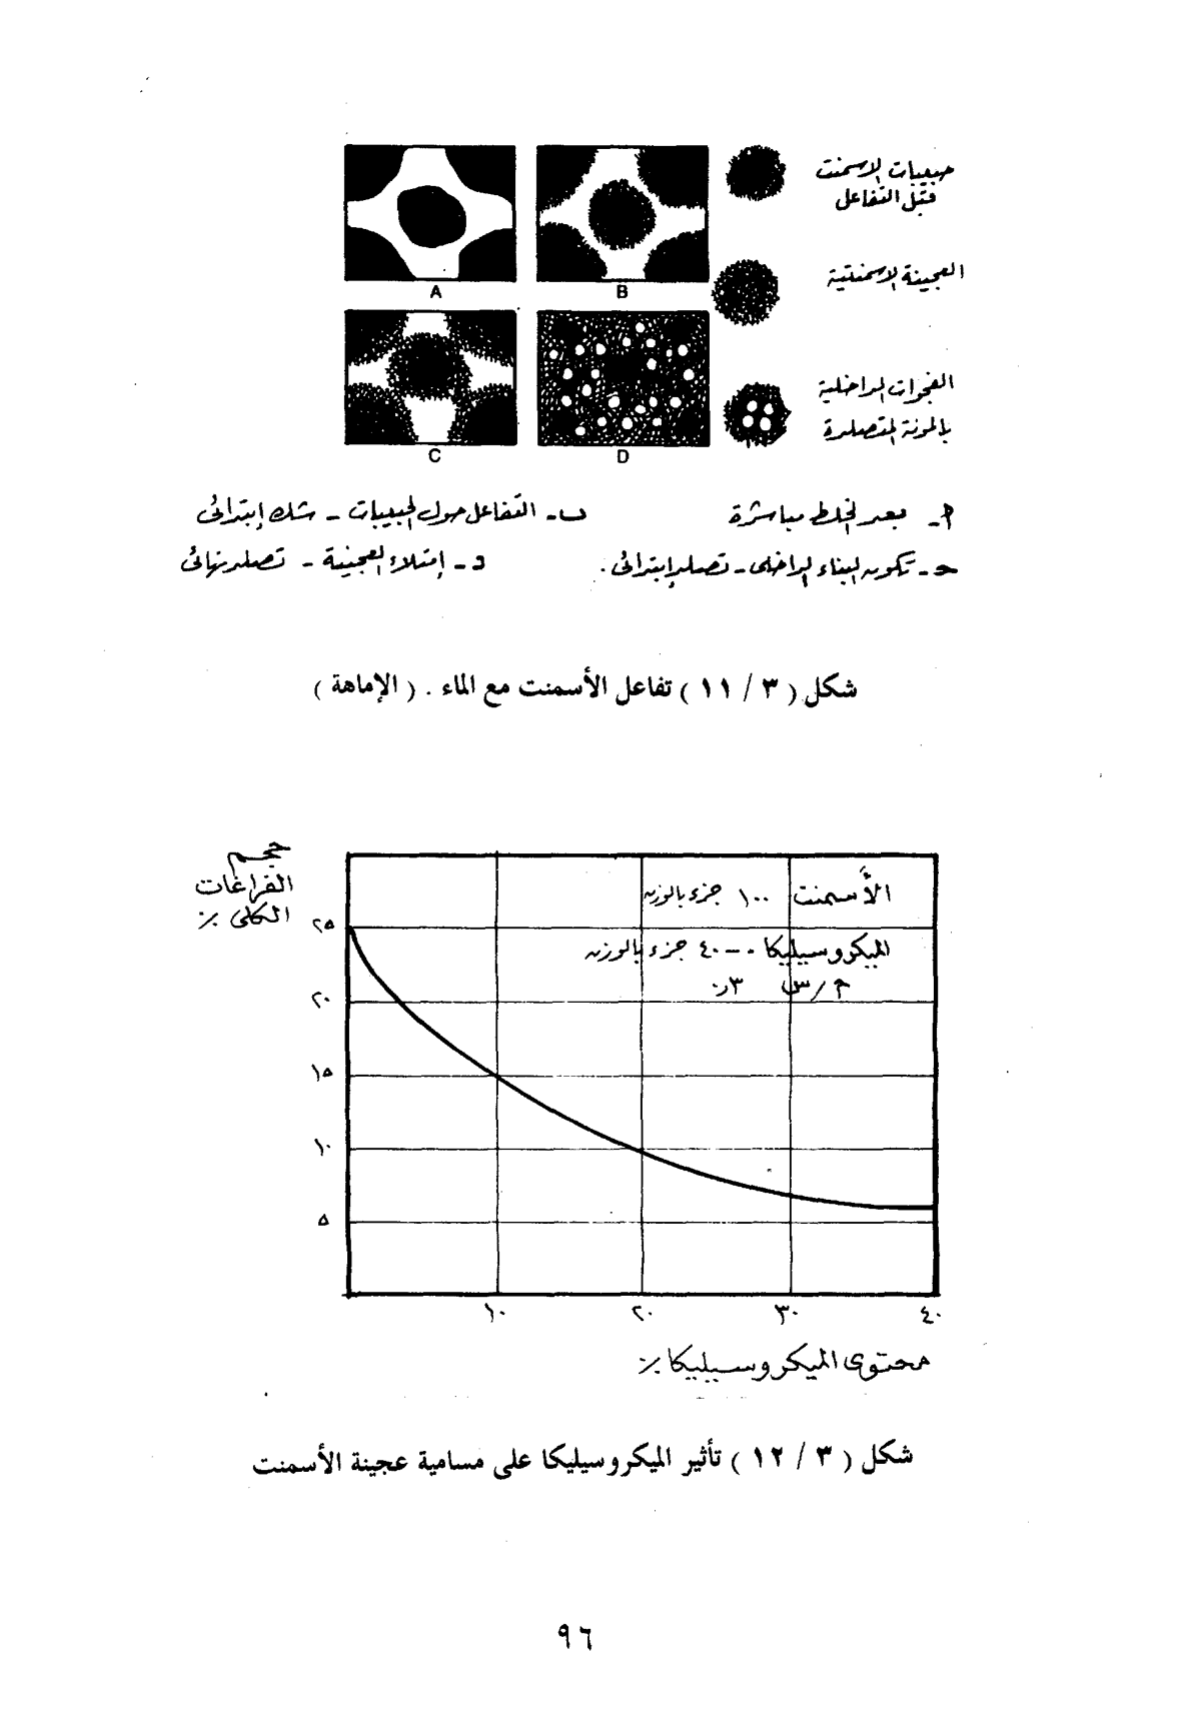 حبيبات الاسمنت
قبل التفاعل
العجينة الاسمنتية
الفجوات الداخلية
بالمونة المتصلدة
A
B
C
D
أ - بعد الخلط مباشرة
ب - التفاعل حول الحبيبات - شك إبتدائى
حـ - تكون البناء الداخلى - تصلد إبتدائى .
د - إمتلاء العجينة - تصلد نهائى
شكل ( ٣ / ١١ ) تفاعل الأسمنت مع الماء . ( الإماهة )
حجم
الفراغات
الكلى ٪
الأسمنت ١٠٠ جزء بالوزن
الميكروسيليكا ٠ - ٤٠ جزء بالوزن
م / س ٣ر٠
٢٥
٢٠
١٥
١٠
٥
١٠ ٢٠ ٣٠ ٤٠
محتوى الميكروسيليكا ٪
شكل ( ٣ / ١٢ ) تأثير الميكروسيليكا على مسامية عجينة الأسمنت
٩٦